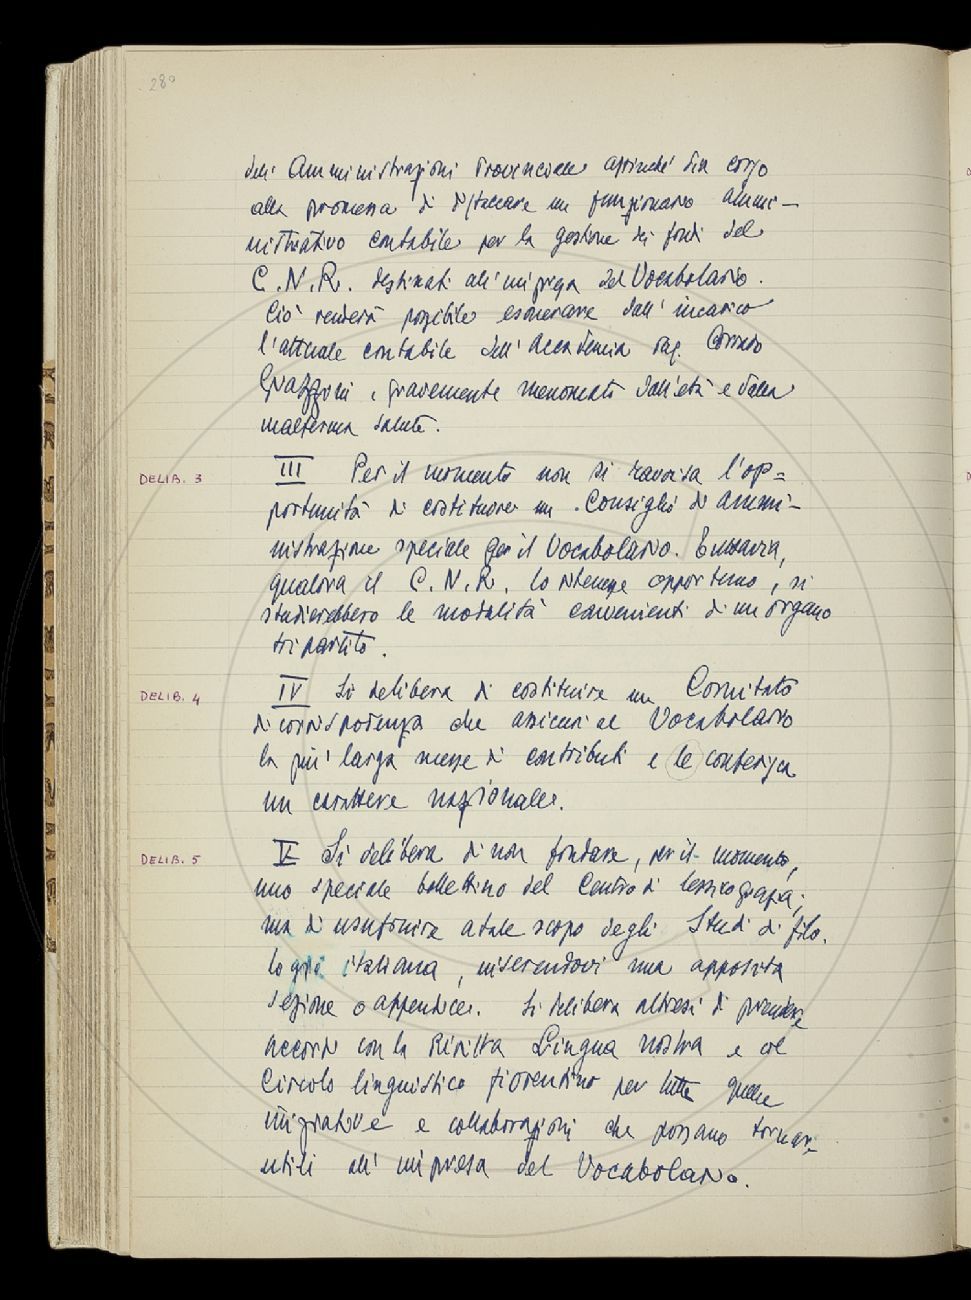 280
dell'Amministrazioni Provinciale affinché dia corso
alla promessa di distaccare un funzionario ammi-
nistrativo contabile per la gestione dei fondi del
C.N.R. destinati all'impresa del Vocabolario.
Ciò renderà possibile esonerare dall'incarico
l'attuale contabile dell'Accademia rag. Corrado
Grazzini, gravemente menomato dall'età e dalla
malferma salute.
DELIB. 3 III Per il momento non si ravvisa l'op=
portunità di costituire un Consiglio di ammi-
nistrazione speciale per il Vocabolario. Tuttavia,
qualora il C.N.R. lo ritenesse opportuno, si
studierebbero le modalità convenienti di un organo
tripartito.
DELIB. 4 IV Si delibera di costituire un Comitato
di corrispondenza che assicuri al Vocabolario
la più larga messe di contributi e le conferisca
un carattere nazionale.
DELIB. 5 V Si delibera di non fondare, per il momento,
uno speciale bollettino del Centro di lessicografia;
ma di usufruire a tale scopo degli Studi di filo-
logia italiana, inserendovi una apposita
sezione o appendice. Si delibera altresì di prendere
accordi con la Rivista Lingua nostra e col
Circolo linguistico fiorentino per tutte quelle
iniziative e collaborazioni che possano tornare
utili all'impresa del Vocabolario.